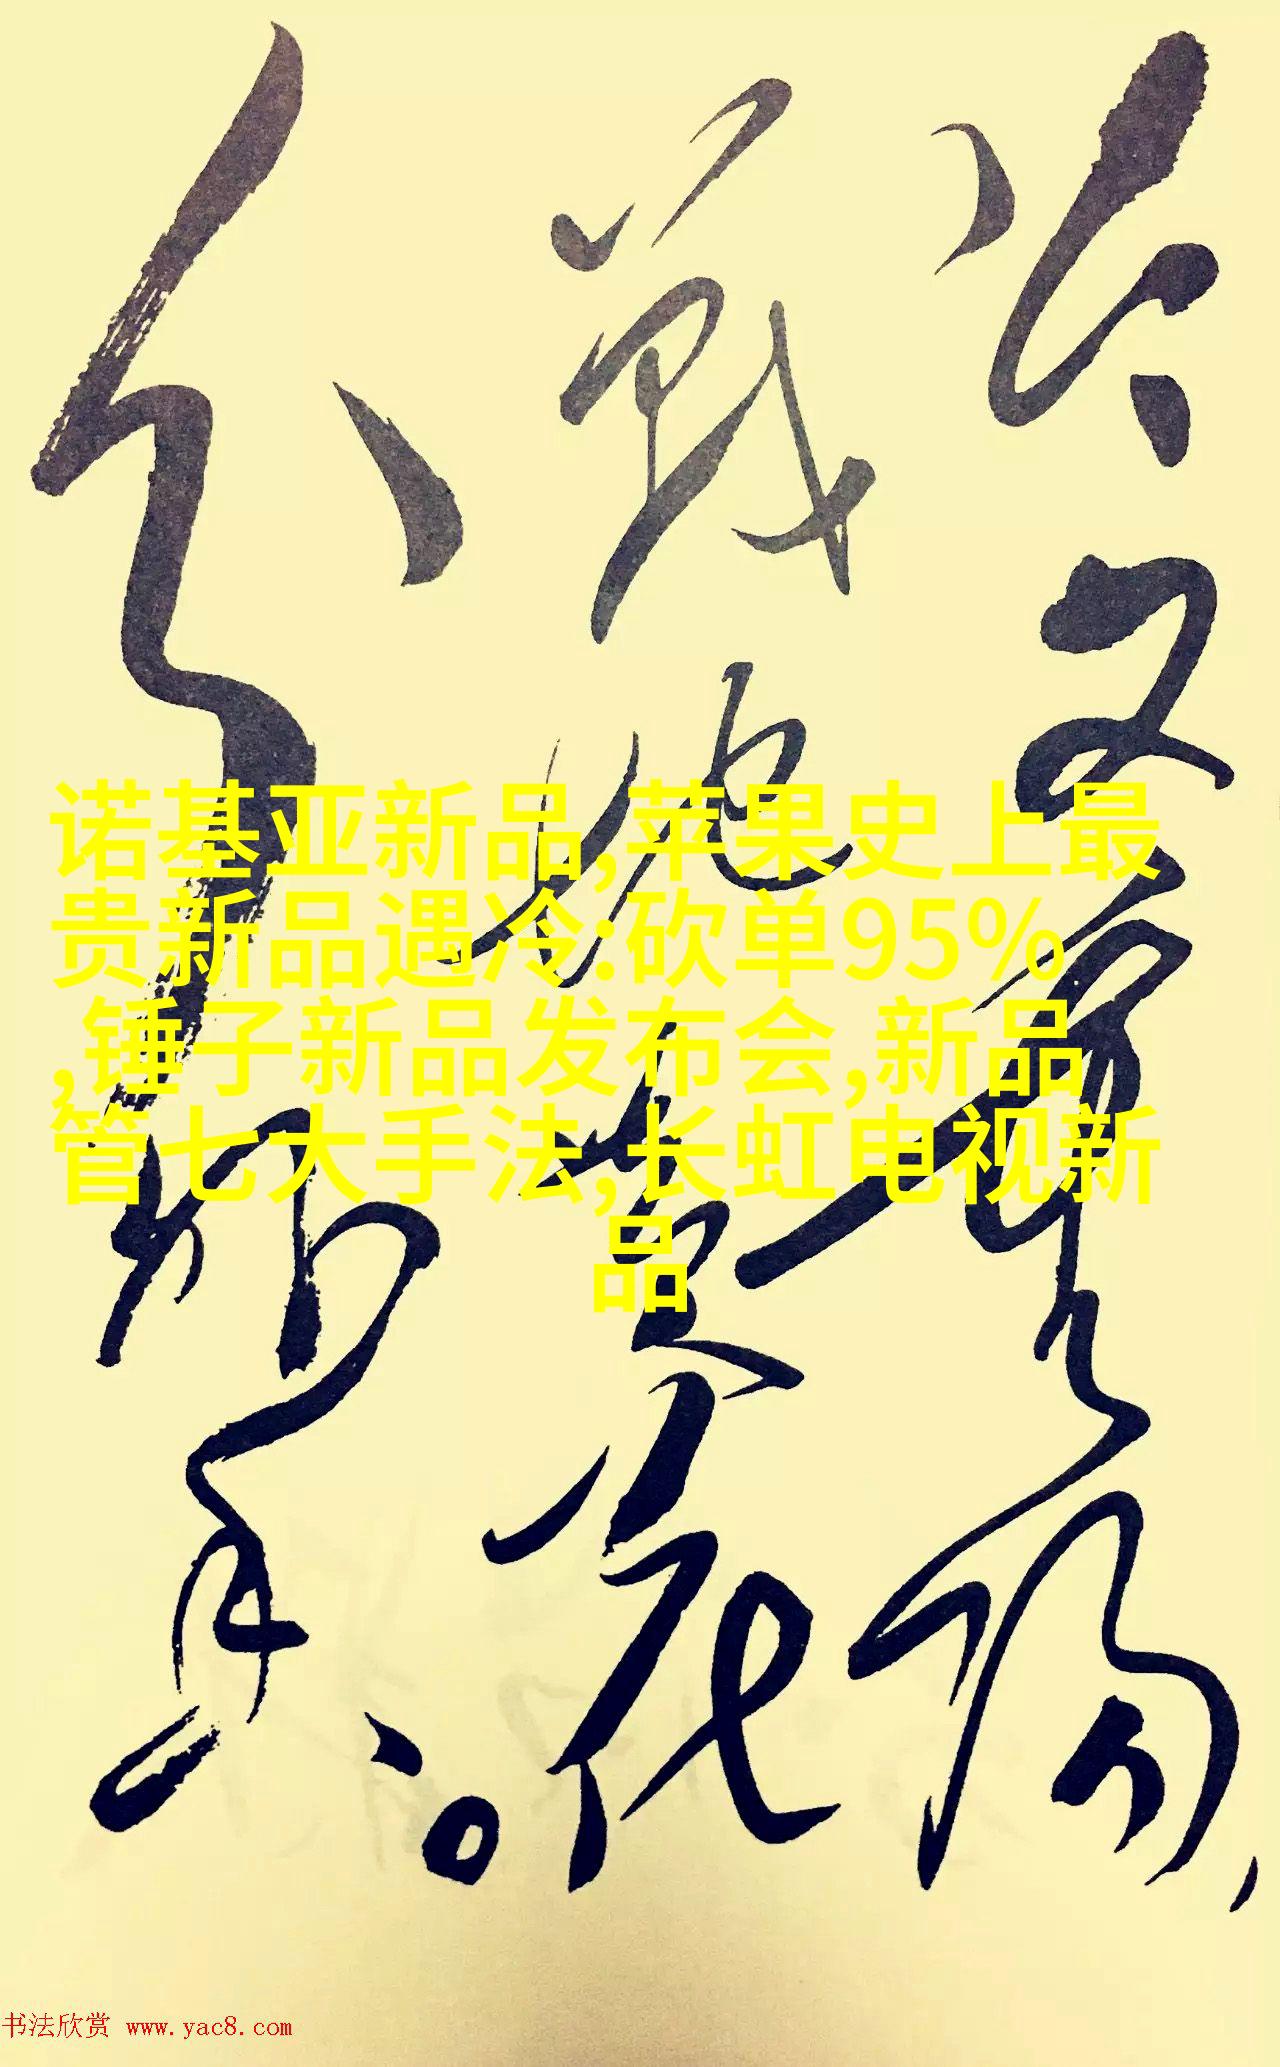 今又重陽，
戰地黄花
分外香。
诺基亚新品,苹果史上最
贵新品遇冷:砍单95%
,锤子新品发布会,新品
管七大手法,长虹电视新
品
书法欣赏 www.yac8.com